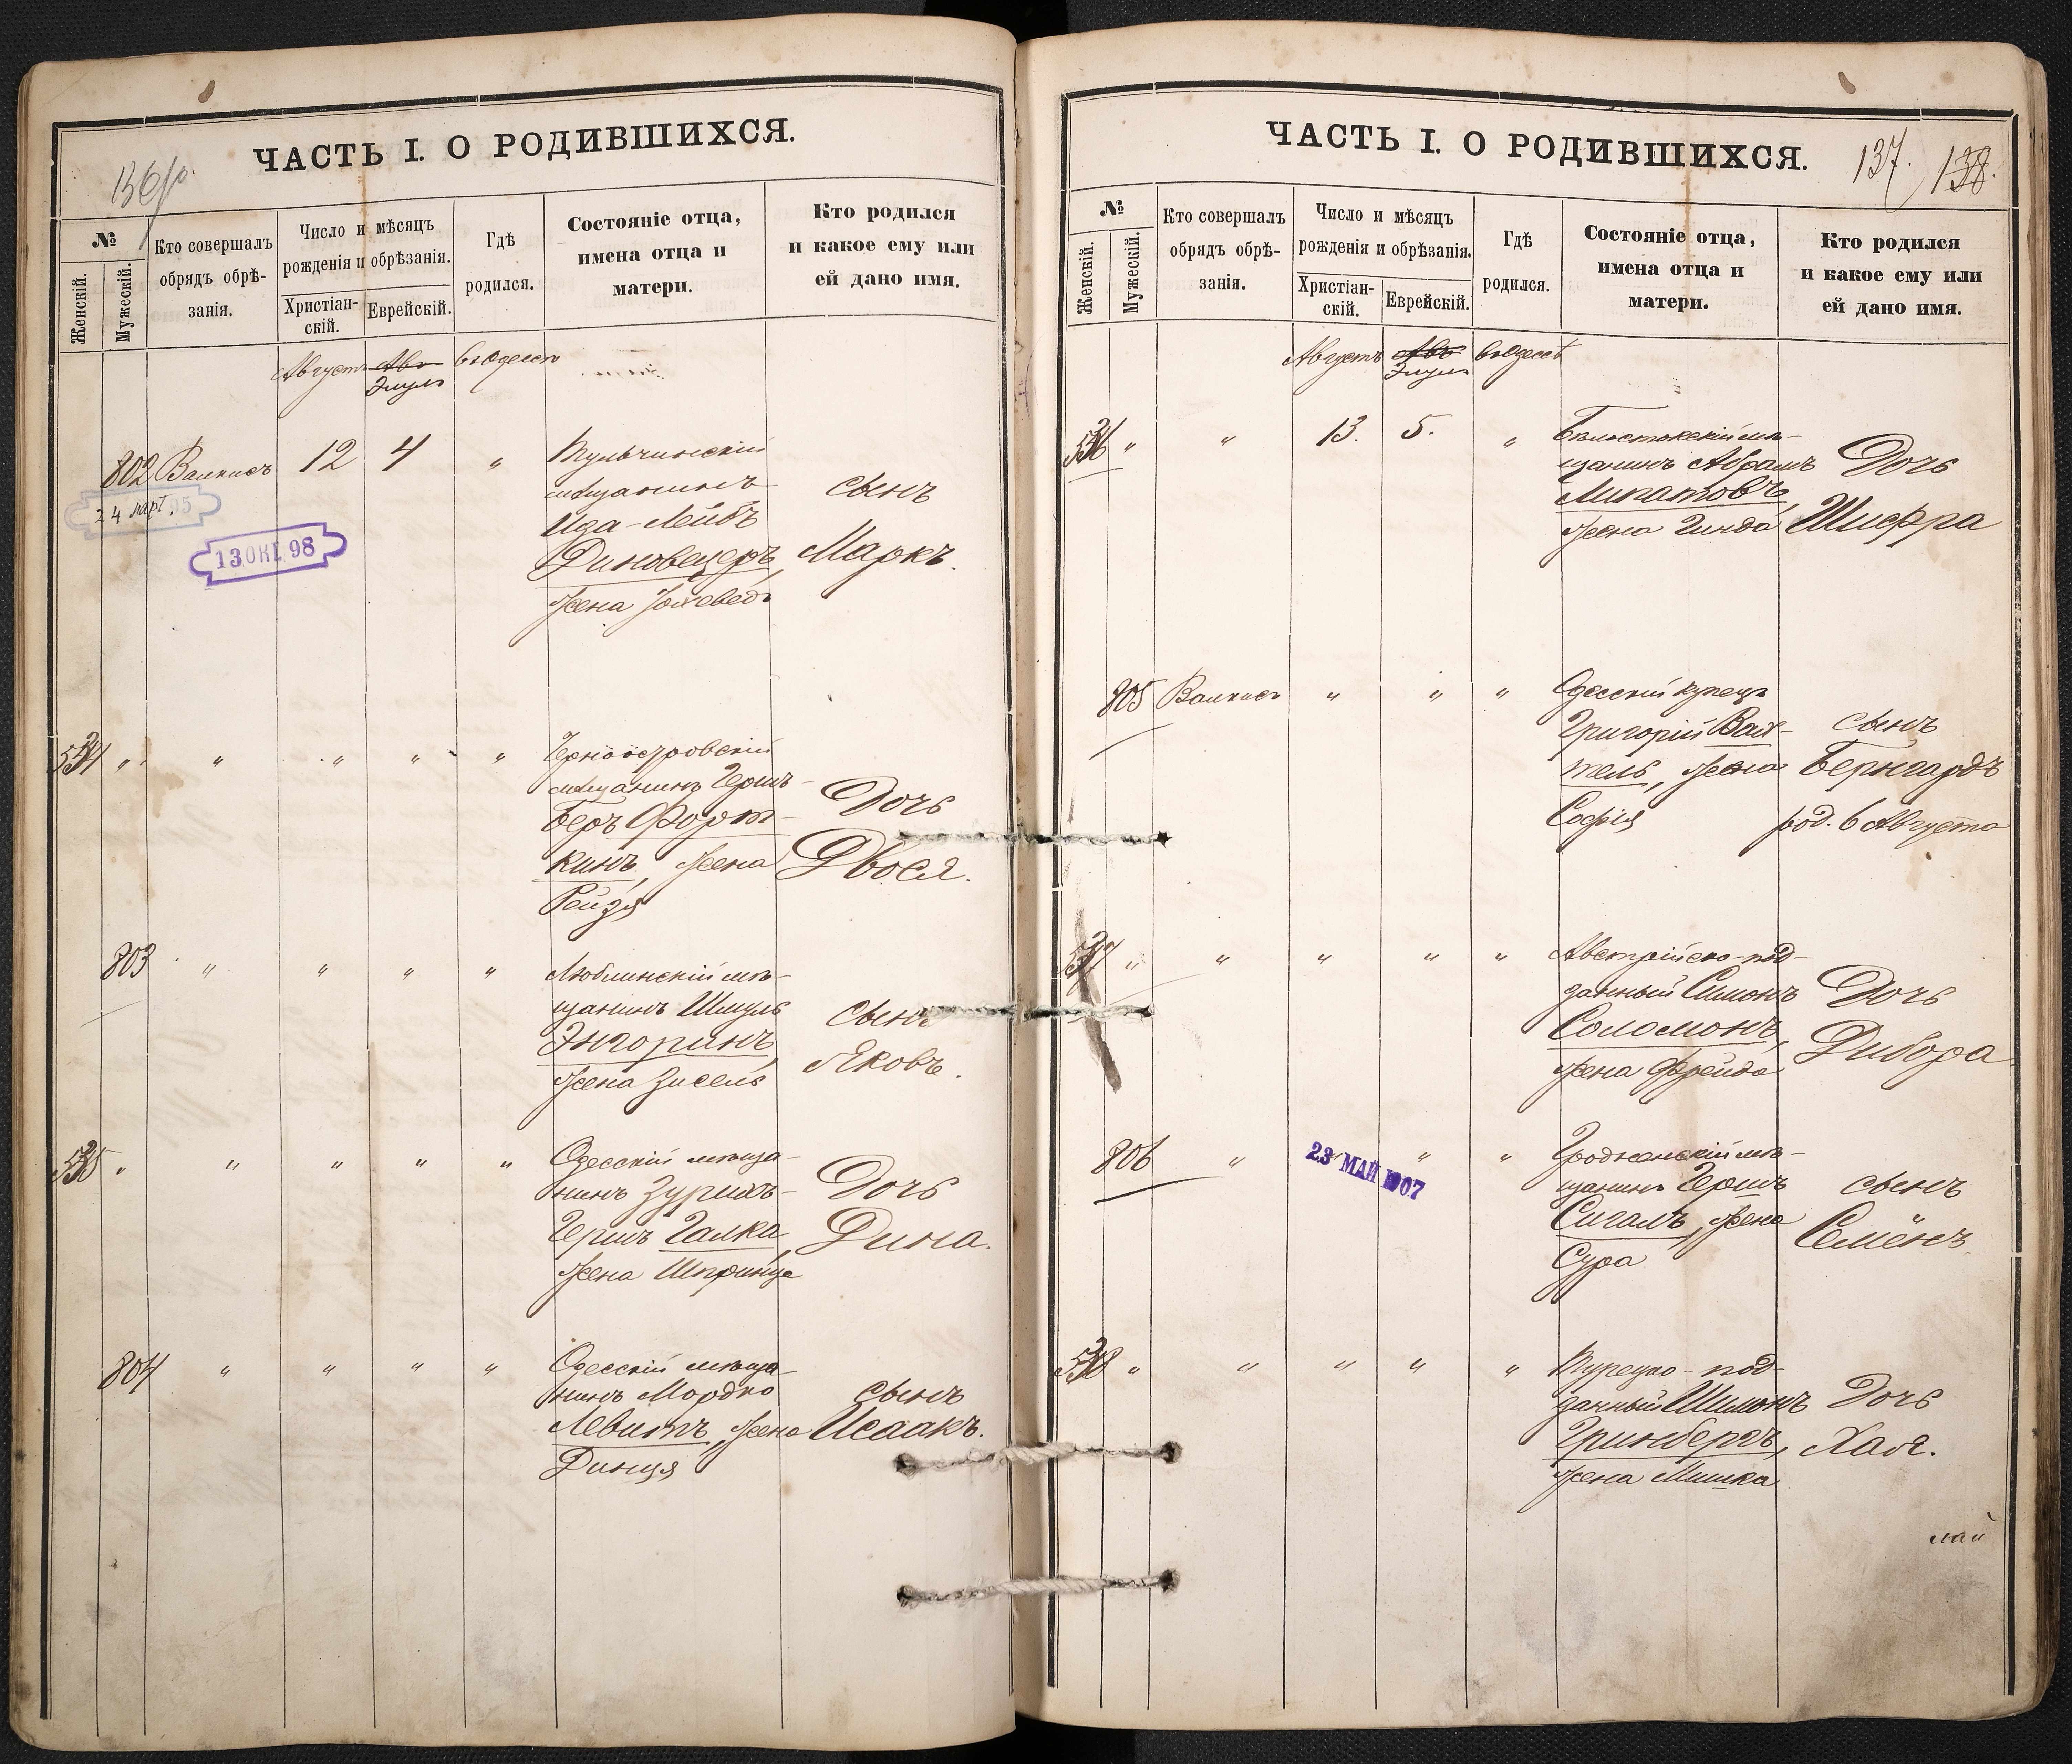 ЧАСТЬ I. О РОДИВШИХСЯ.
№
Женскій.
Мужескій.
Кто совершалъ
обрядъ обрѣ-
занія.
Число и мѣсяцъ
рожденія и обрѣзанія.
Христіан-
скій.
Еврейскій.
Гдѣ
родился.
Состояніе отца,
имена отца и
матери.
Кто родился
и какое ему или
ей дано имя.
Августъ Авъ въ Одессѣ
Элулъ
802 12 4 "
Тульчинскій
мѣщанинъ
Ида-Лейбъ
Диновецеръ,
жена
сынъ
Маркъ.
24 март. 95
13 ОКТ. 98
534 " " " " "
Черноостровскій
мѣщанинъ Гершъ-
Беръ Форт-
кинъ, жена
Рейзя
Дочь
Двося.
803 " " " "
Люблинскій мѣ-
щанинъ Шмуль
Энгоринъ,
жена Зисель
сынъ
Яковъ.
535 " " " " "
Одесскій мѣща-
нинъ
Гершъ Галка,
жена Шпринца
Дочь
Дина.
804 " " " "
Одесскій мѣща-
нинъ Мордко
Левитъ, жена
Динця
сынъ
Исаакъ.
ЧАСТЬ I. О РОДИВШИХСЯ.
137. 138.
№
Женскій.
Мужескій.
Кто совершалъ
обрядъ обрѣ-
занія.
Число и мѣсяцъ
рожденія и обрѣзанія.
Христіан-
скій.
Еврейскій.
Гдѣ
родился.
Состояніе отца,
имена отца и
матери.
Кто родился
и какое ему или
ей дано имя.
Августъ Авъ въ Одессѣ
Элулъ
536 " " 13. 5. "
Бѣлостокскій мѣ-
щанинъ Абрамъ
Липатовъ,
жена Гинда
Дочь
Шифра
805 " " "
Одесскій купецъ
Григорій Вай-
тель, жена
Софія
сынъ
Бернгардъ
род. 6 Августа
537 " " " " "
Австрійско-под-
данный Симонъ
Соломонъ,
жена Фрейда
Дочь
Дибора
806 " " "
23 МАЙ 1907
Гродненскій мѣ-
щанинъ Гершъ
Сигалъ, жена
Сура
сынъ
Семёнъ
538 " " " " "
Турецко-под-
данный Шимонъ
Гринбергъ,
жена Мишка
Дочь
Хая.